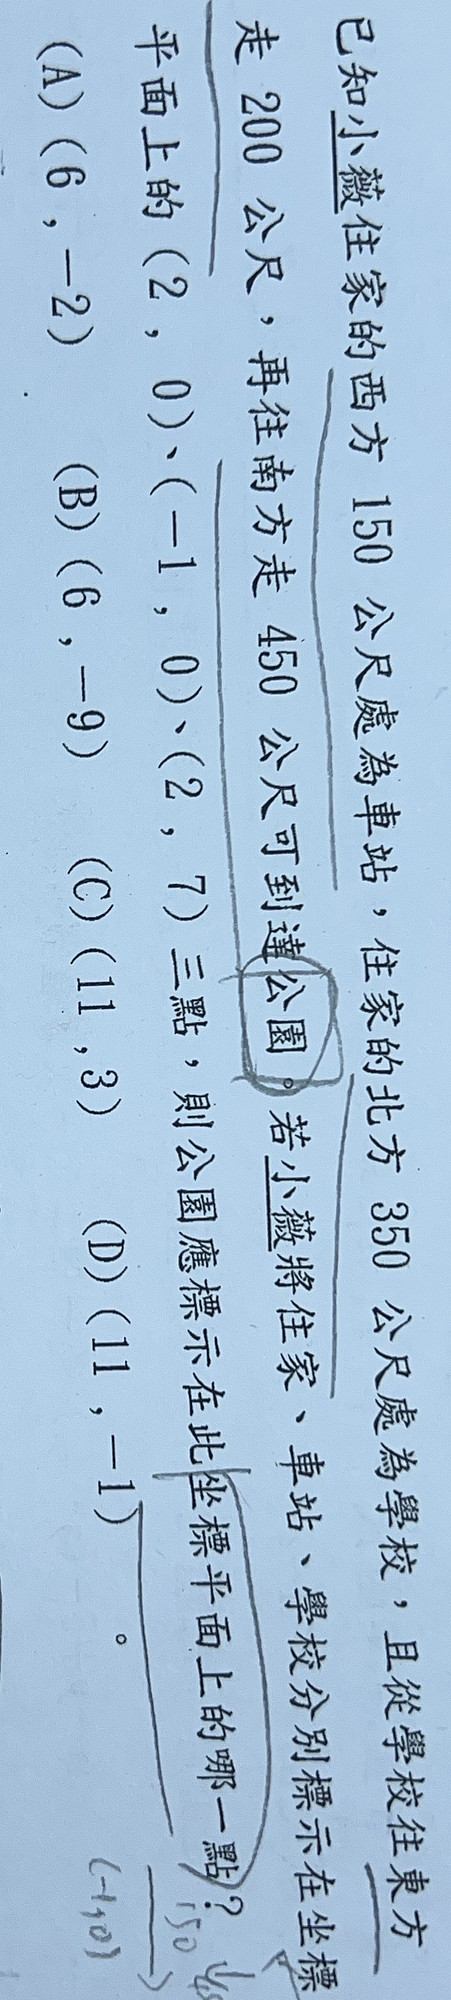 已知小薇住家的西方 150 公尺處為車站，住家的北方 350 公尺處為學校，且從學校往東方
走 200 公尺，再往南方走 450 公尺可到達公園。若小薇將住家、車站、學校分別標示在坐標
平面上的 (2 , 0)、(-1 , 0)、(2 , 7) 三點，則公園應標示在此坐標平面上的哪一點？
(A) (6 , -2) (B) (6 , -9) (C) (11 , 3) (D) (11 , -1) 。
150
(-1,0)